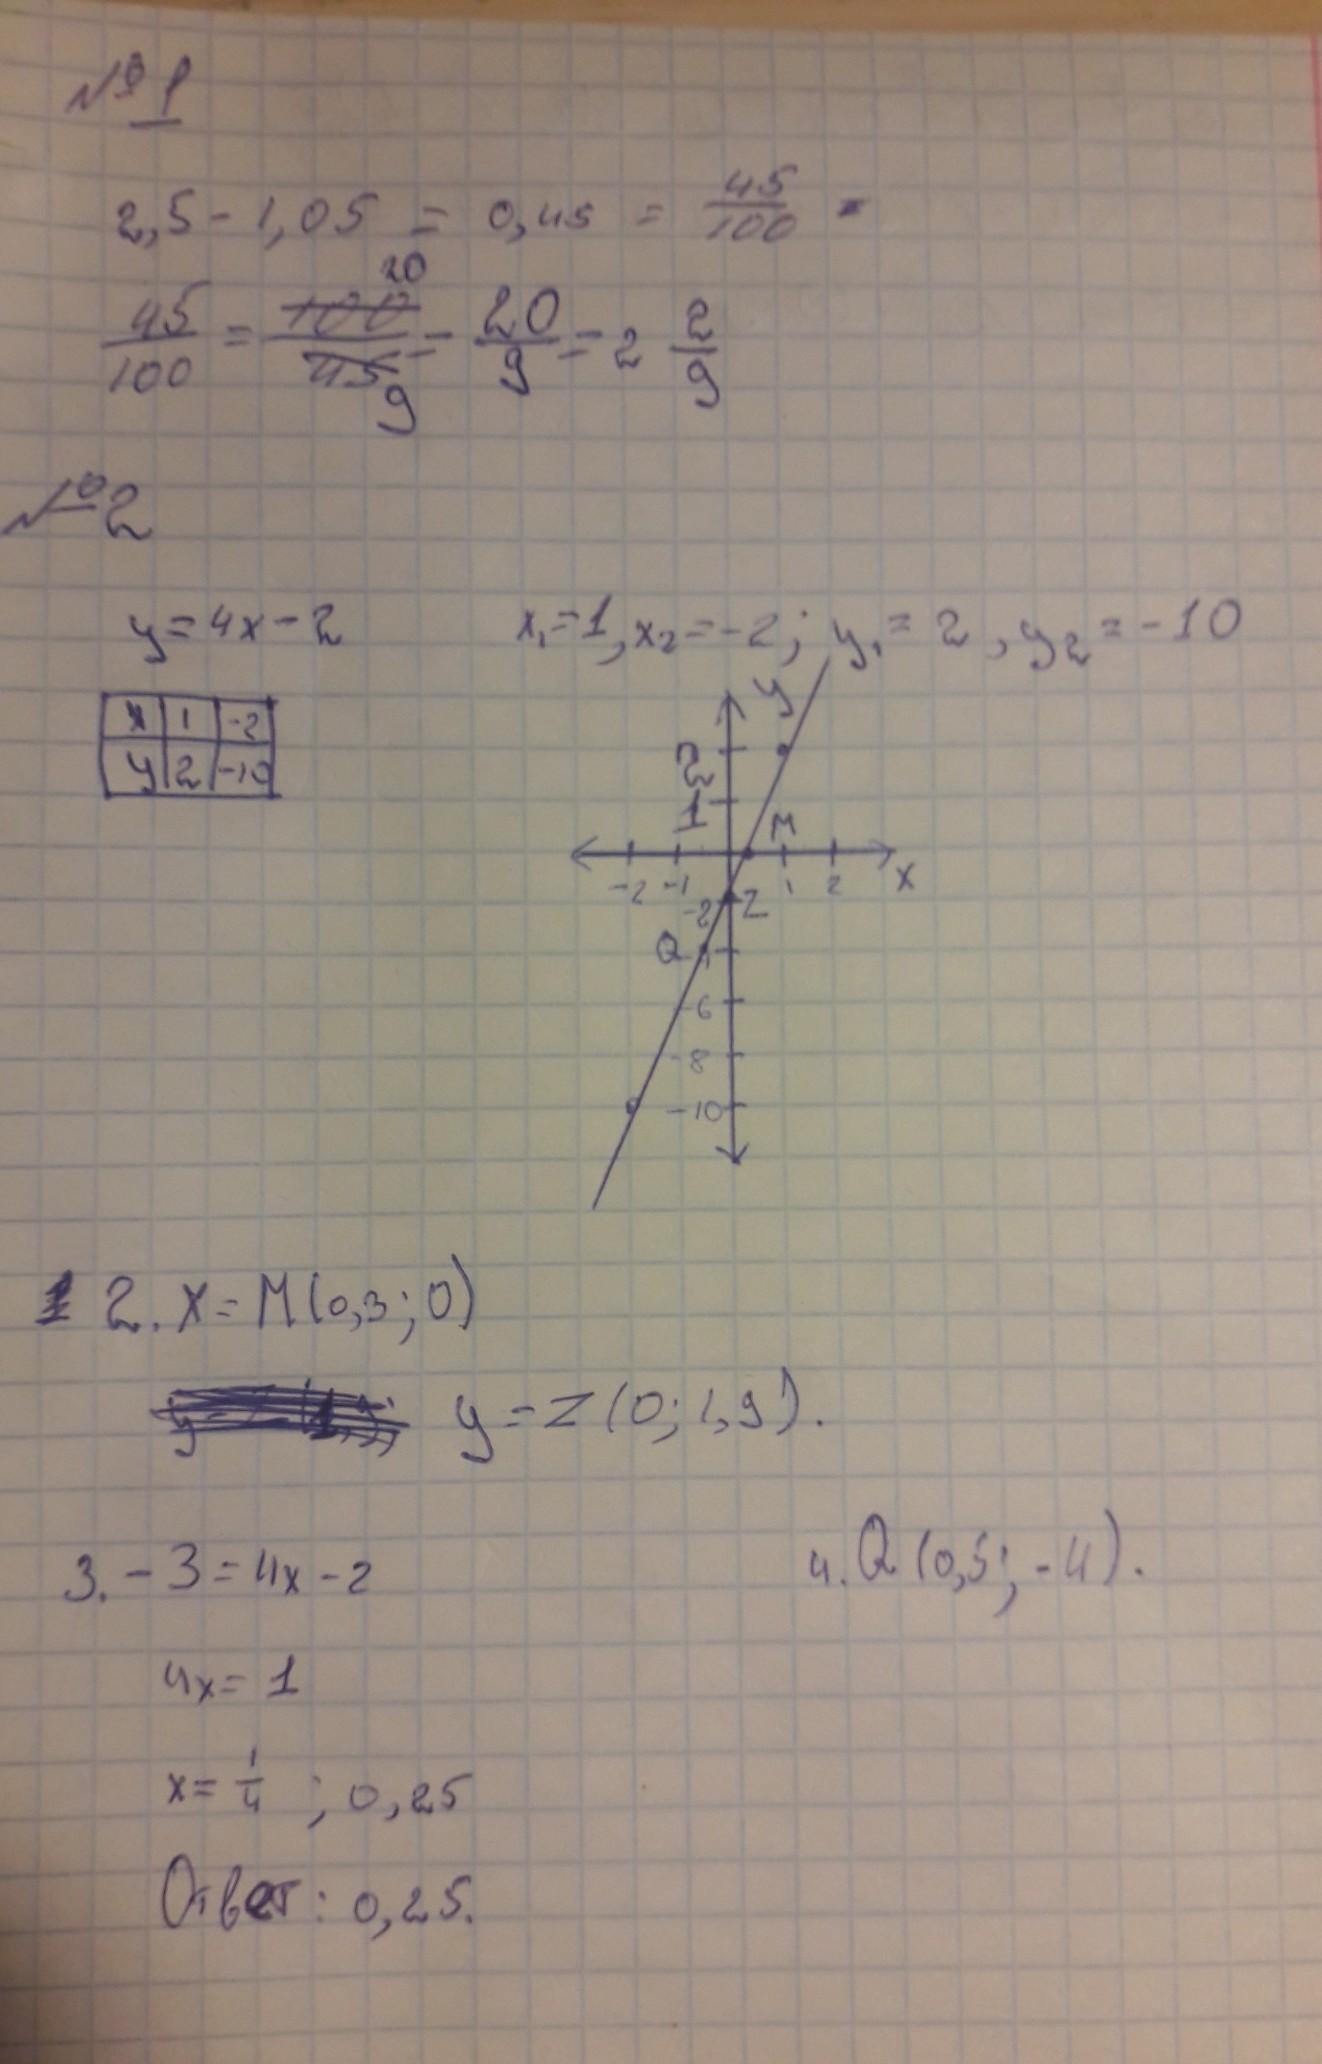 № 1
2,5 - 1,05 = 0,45 = 45/100 =
45/100 = 100/45 = 20/9 = 2 2/9
20
9
№ 2
y = 4x - 2 x₁ = 1, x₂ = -2; y₁ = 2, y₂ = -10
x 1 -2
y 2 -10
y
2
1
M
-2 -1 1 2 x
-2 Z
Q
-6
-8
-10
2. X = M(0,3; 0)
y = Z(0; 1,9).
3. - 3 = 4x - 2 4. Q(0,5; -4).
4x = 1
x = 1/4 ; 0,25
Ответ: 0,25.